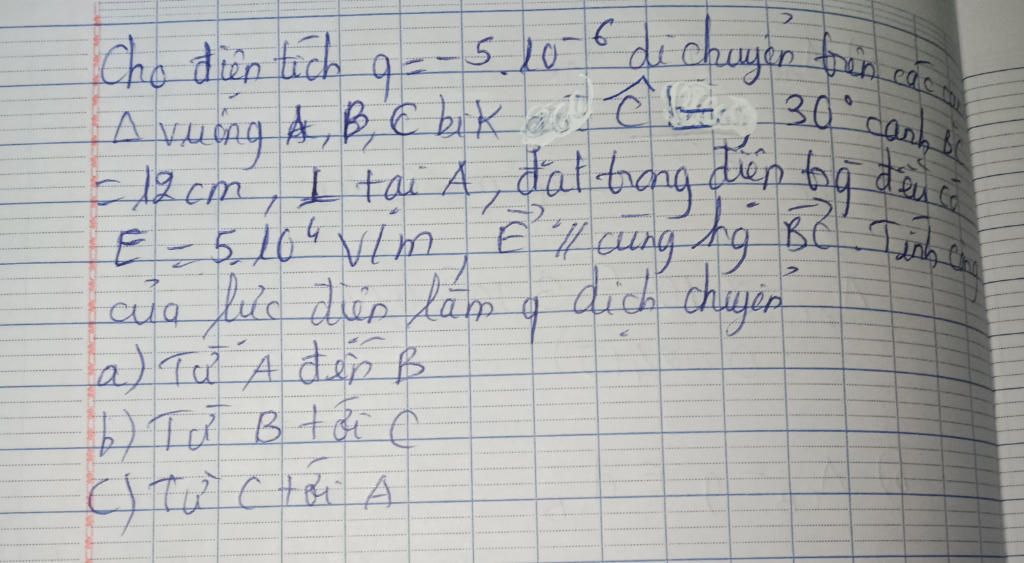 Cho điện tích q = -5.10⁻⁶ di chuyển trên các
Δ vuông A, B, C biK Ĉ = 30° cạnh BC
= 12 cm, ⊥ tại A, đặt trong điện trg đều có
E = 5.10⁴ V/m, E⃗ // cùng hg BC⃗. Tính công
của lực điện làm q dịch chuyển
a) Từ A đến B
b) Từ B tới C
c) Từ C tới A